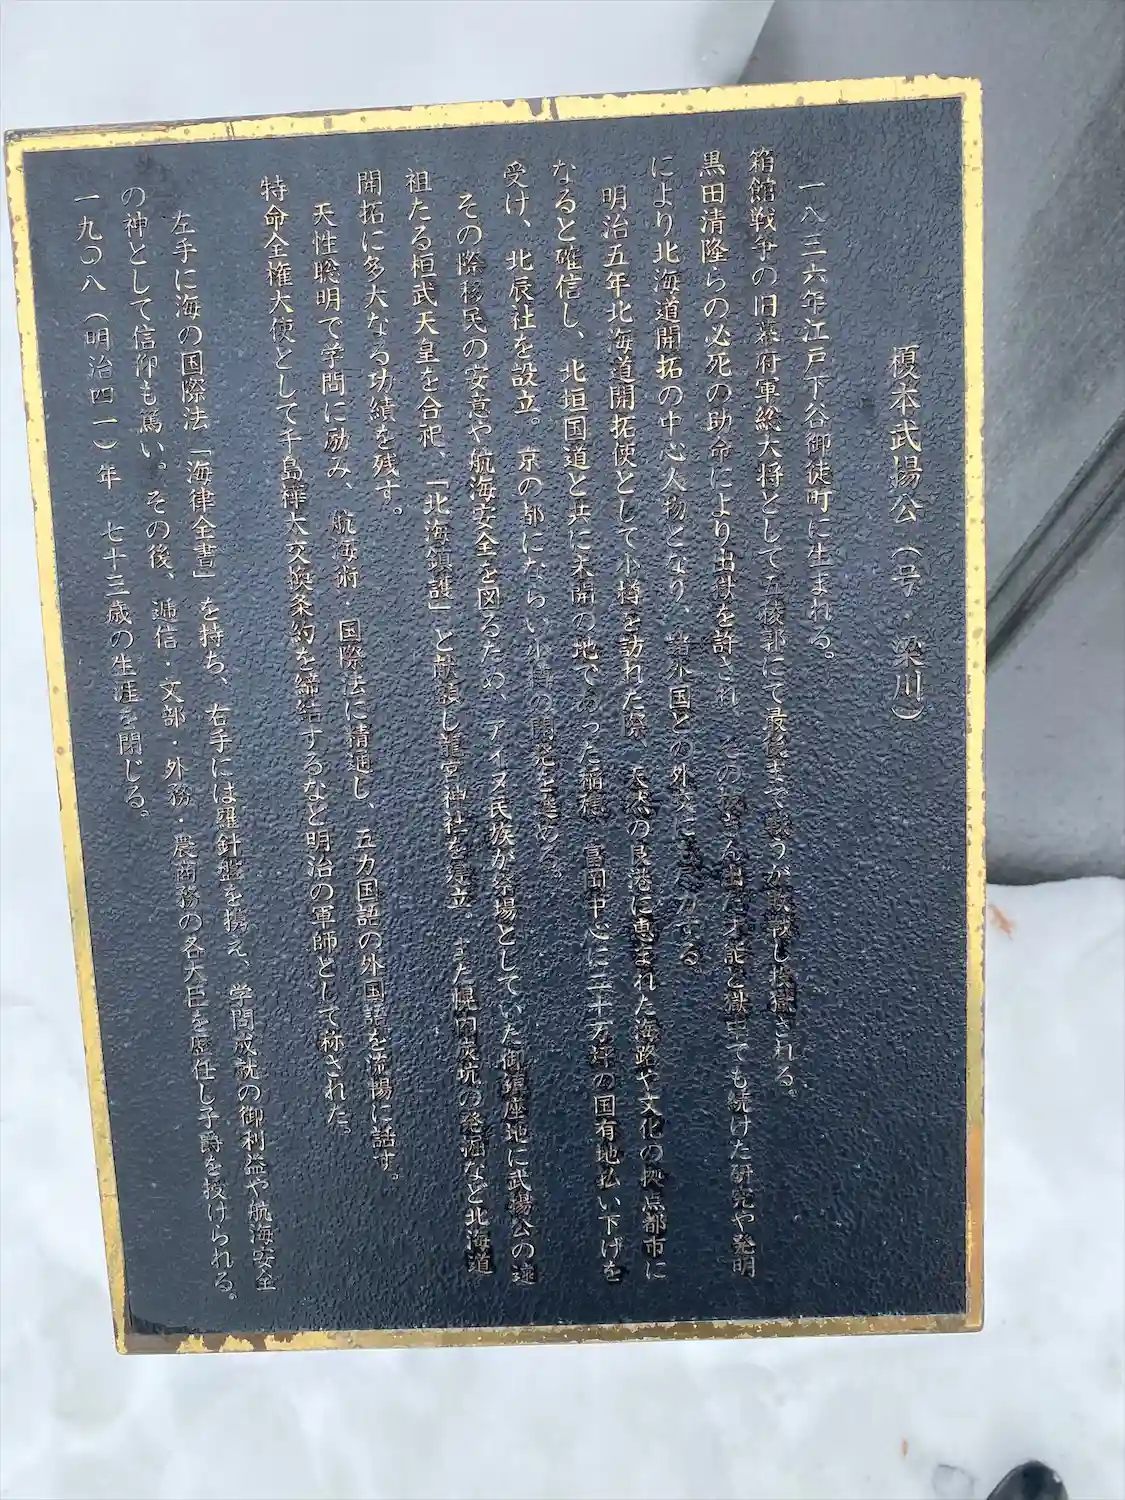 榎本武揚公（号・梁川）
一八三六年江戸下谷御徒町に生まれる。
箱館戦争の旧幕府軍総大将として五稜郭にて最後まで戦うが敗戦し投獄される。
黒田清隆らの必死の助命により出獄を許され、その抜きん出た才能と獄中でも続けた研究や発明
により北海道開拓の中心人物となり、諸外国との外交にも尽力する。
明治五年北海道開拓使として小樽を訪れた際、天然の良港に恵まれた海路や文化の拠点都市に
なると確信し、北垣国道と共に未開の地であった稲穂、富岡中心に二十万坪の国有地払い下げを
受け、北辰社を設立。京の都にならい小樽の開発を進める。
その際移民の安意や航海安全を図るため、アイヌ民族が祭場としていた御鎮座地に武揚公の遠
祖たる桓武天皇を合祀、「北海鎮護」と献額し龍宮神社を建立。また幌内炭坑の発掘など北海道
開拓に多大なる功績を残す。
天性聡明で学問に励み、航海術・国際法に精通し、五カ国語の外国語を流暢に話す。
特命全権大使として千島樺太交換条約を締結するなど明治の軍師として称された。
左手に海の国際法「海律全書」を持ち、右手には羅針盤を携え、学問成就の御利益や航海安全
の神として信仰も篤い。その後、逓信・文部・外務・農商務の各大臣を歴任し子爵を授けられる。
一九〇八（明治四一）年　七十三歳の生涯を閉じる。